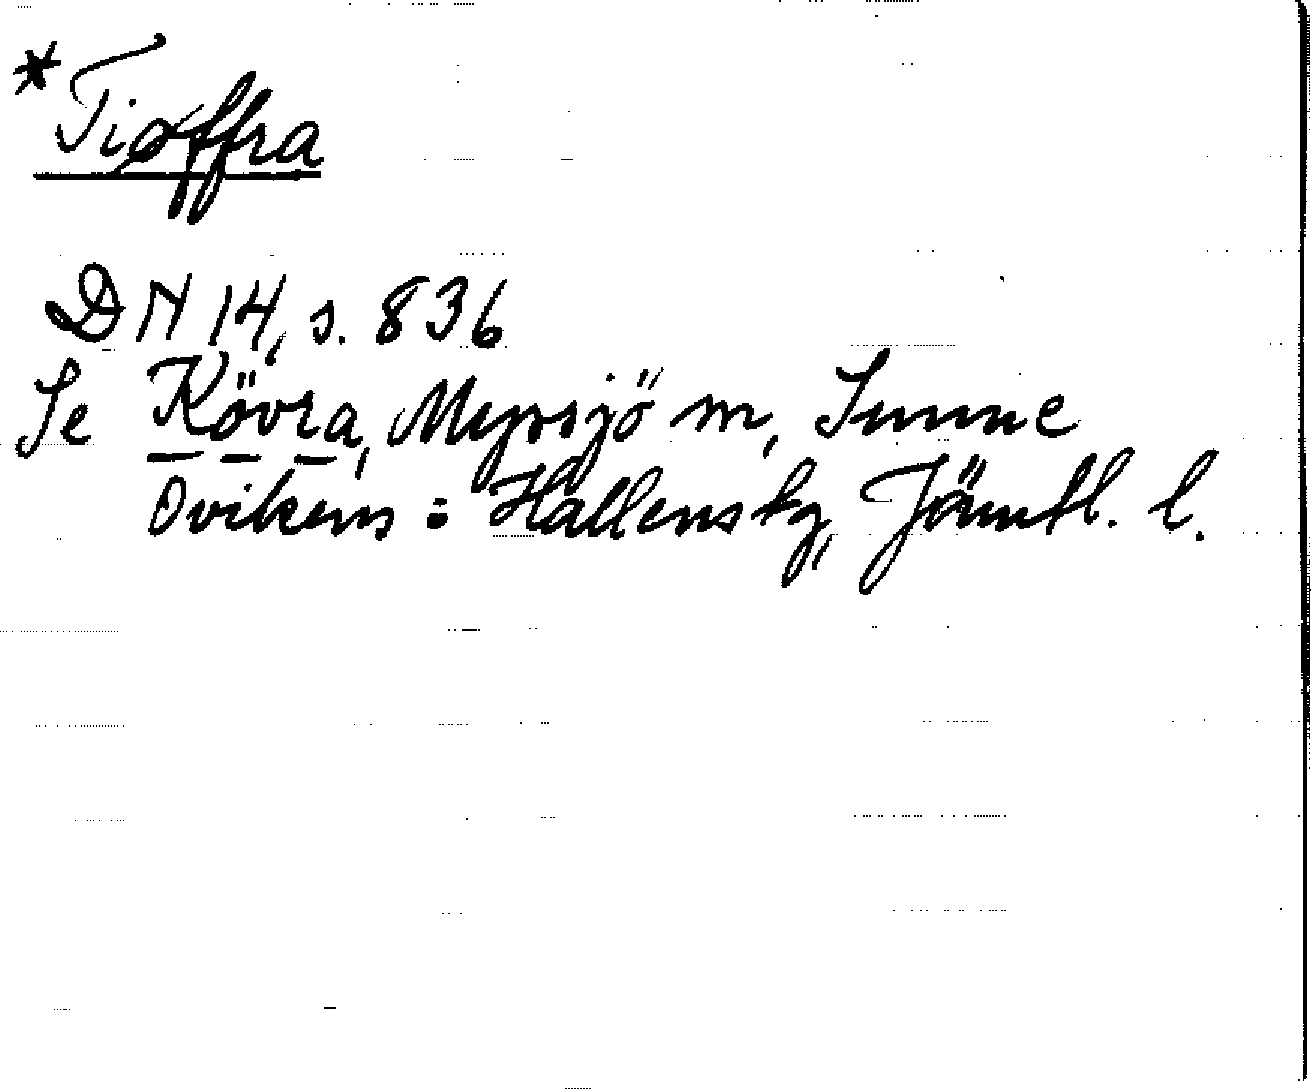 *Tiøffra
DN 14, s. 836
Se Kövra, Myssjö sn, Sunne
Ovikens o Hallens tg, Jämtl. l.